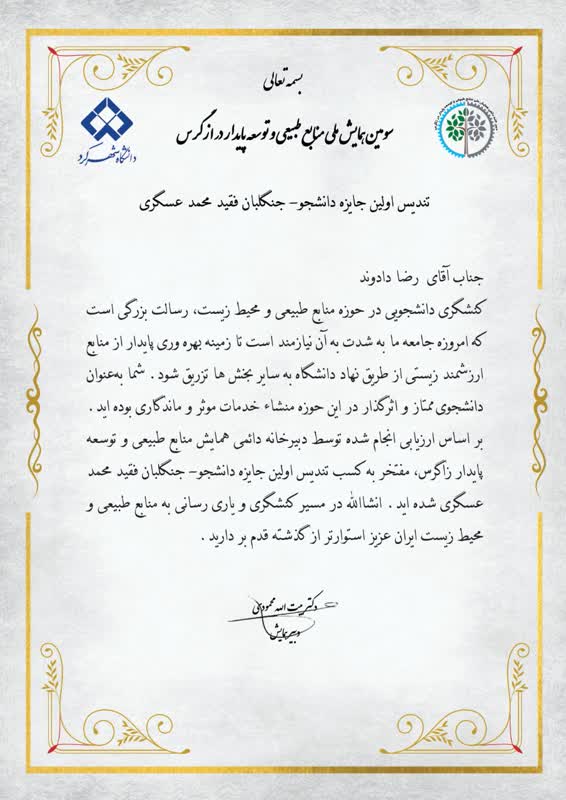 بسمه تعالی
سومین همایش ملی منابع طبیعی و توسعه پایدار در زاگرس
دانشگاه شهرکرد
تندیس اولین جایزه دانشجو- جنگلبان فقید محمد عسگری
جناب آقای رضا دادوند
کنشگری دانشجویی در حوزه منابع طبیعی و محیط زیست، رسالت بزرگی است
که امروزه جامعه ما به شدت به آن نیازمند است تا زمینه بهره وری پایدار از منابع
ارزشمند زیستی از طریق نهاد دانشگاه به سایر بخش ها تزریق شود . شما به‌عنوان
دانشجوی ممتاز و اثرگذار در این حوزه منشاء خدمات موثر و ماندگاری بوده اید .
بر اساس ارزیابی انجام شده توسط دبیرخانه دائمی همایش منابع طبیعی و توسعه
پایدار زاگرس، مفتخر به کسب تندیس اولین جایزه دانشجو- جنگلبان فقید محمد
عسگری شده اید . انشاالله در مسیر کنشگری و یاری رسانی به منابع طبیعی و
محیط زیست ایران عزیز استوارتر از گذشته قدم بر دارید .
دکتر بیت الله محمودی
دبیر همایش